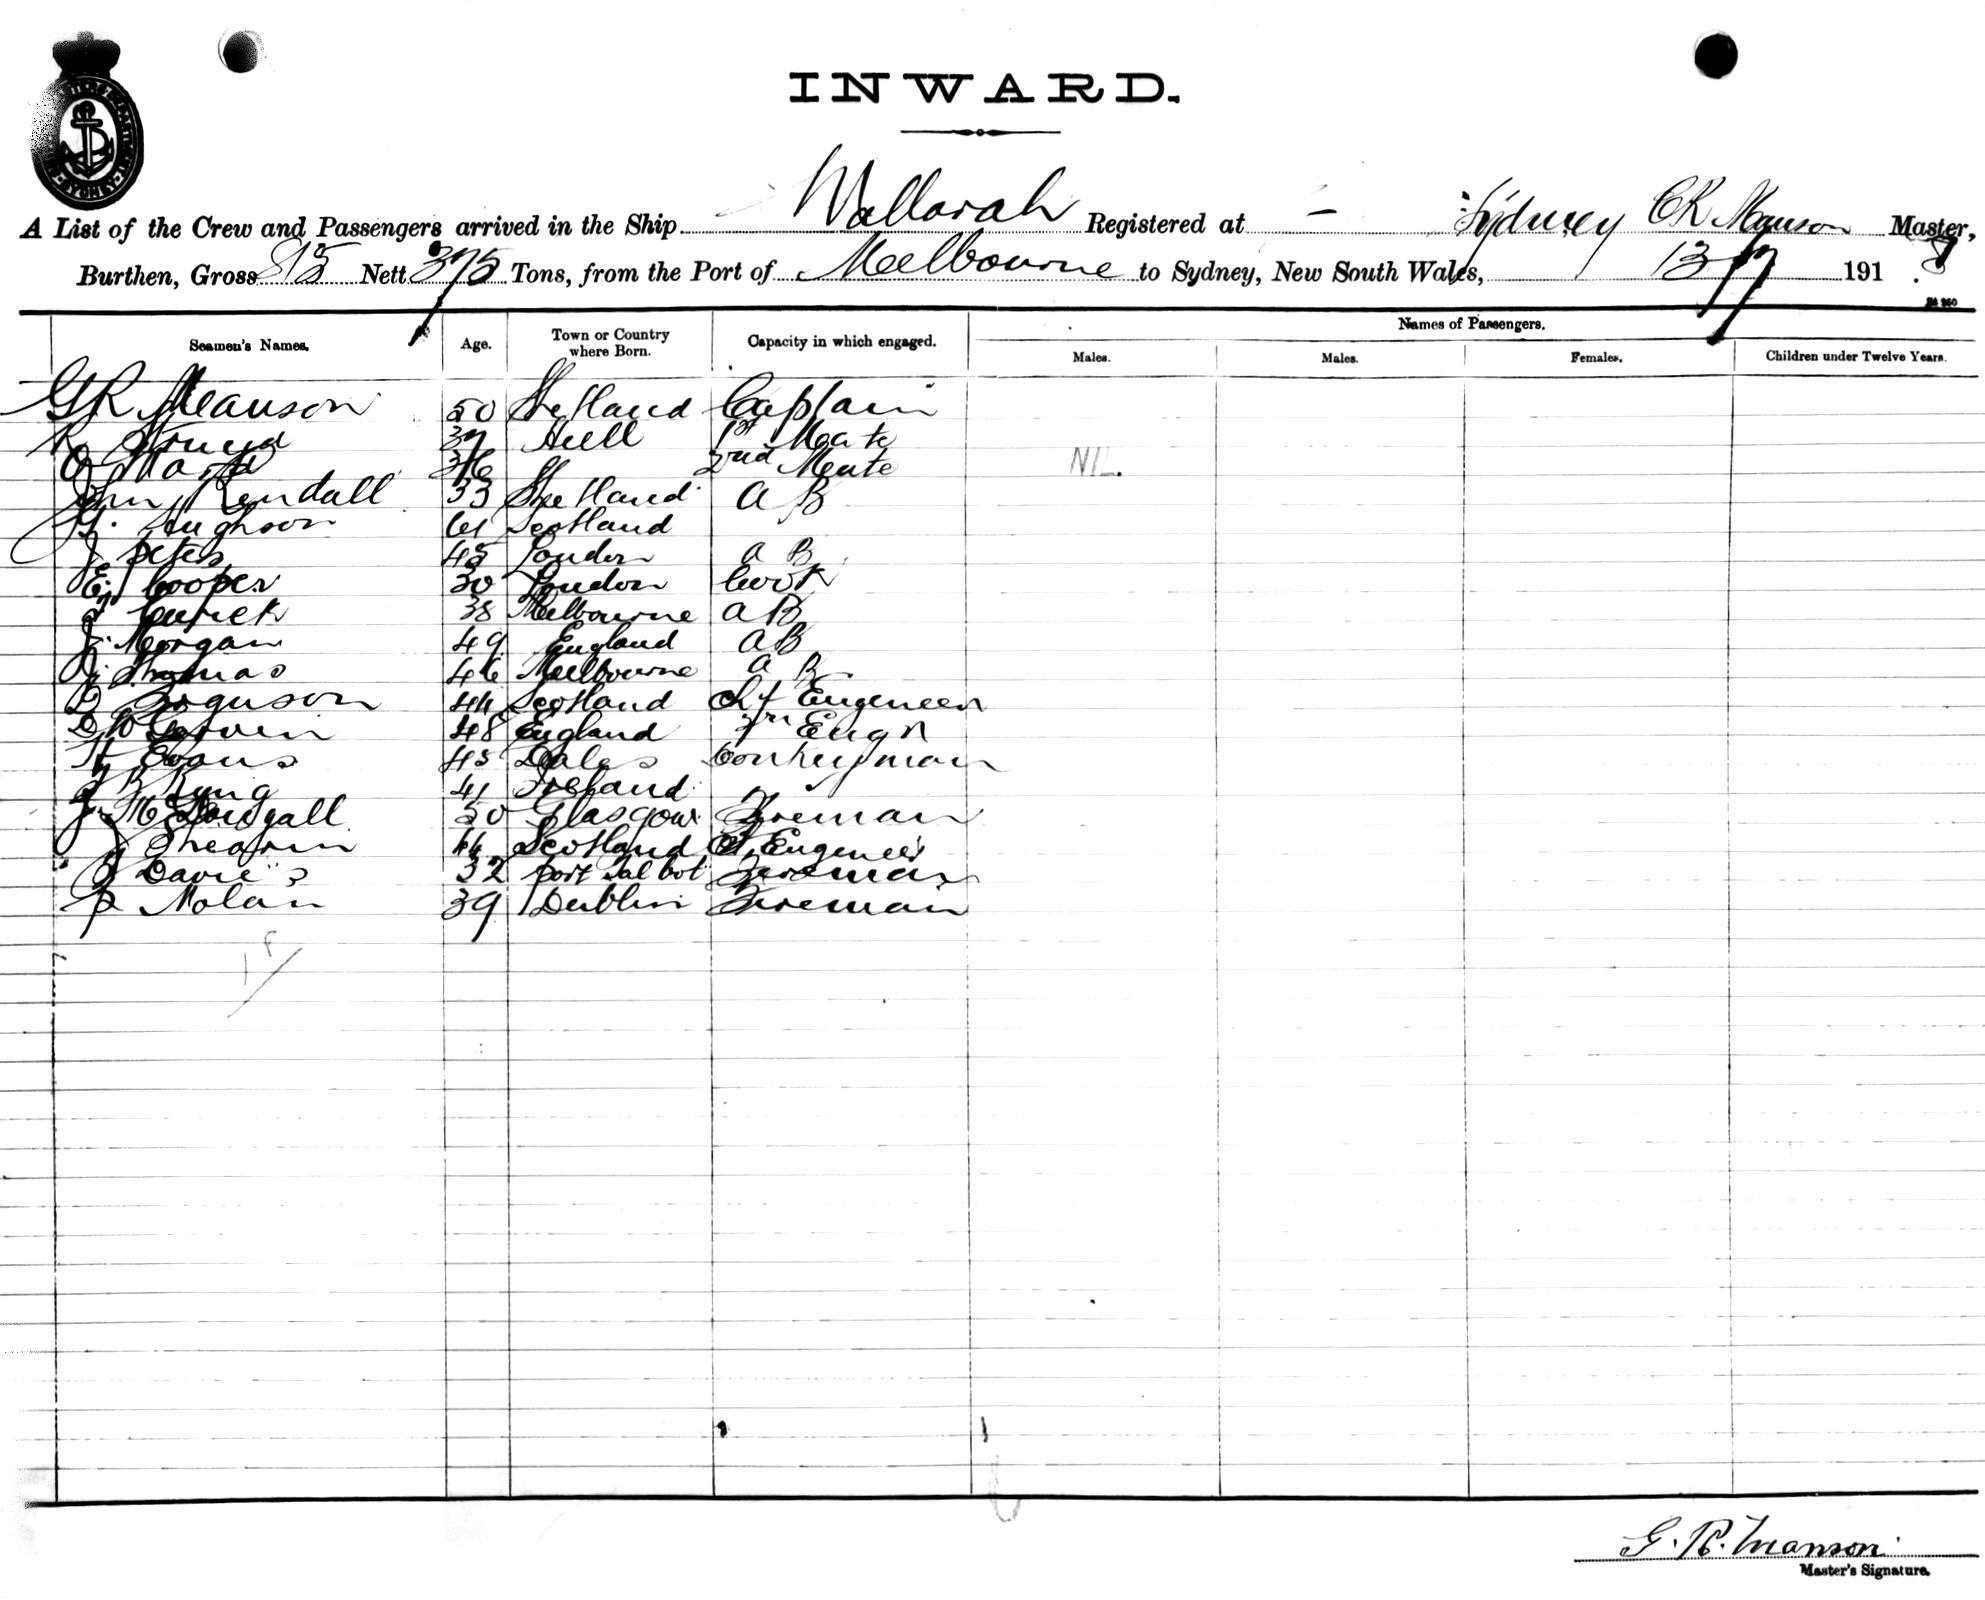 INWARD.
A List of the Crew and Passengers arrived in the Ship Wallarah Registered at Sydney Manson Master,
Burthen, Gross 815 Nett 375 Tons, from the Port of Melbourne to Sydney, New South Wales, 13/7 1918.
Names of Passengers.
Seamen's Names. Age. Town or Country where Born. Capacity in which engaged. Males. Males. Females. Children under Twelve Years.
G R Manson 50 Shetland Captain
Hull 1st Mate
36 2nd Mate NIL.
John Rendall 33 Shetland A B
Hughson 61 Scotland
J. Peters 45 London A B
E. Cooper 30 London Cook
38 Melbourne A B
J. Morgan 49 England A B
Thomas 46 Melbourne A B
D Ferguson 44 Scotland Engeneer
48 England Engr
H Evans 43 Wales Donkeyman
King 41 Ireland
J. McDougall 50 Glasgow Fireman
J Shearin 44 Scotland Engeneer
J Davies 32 Port Talbot Fireman
P Nolan 39 Dublin Fireman
18
G. R. Manson
Master's Signature.